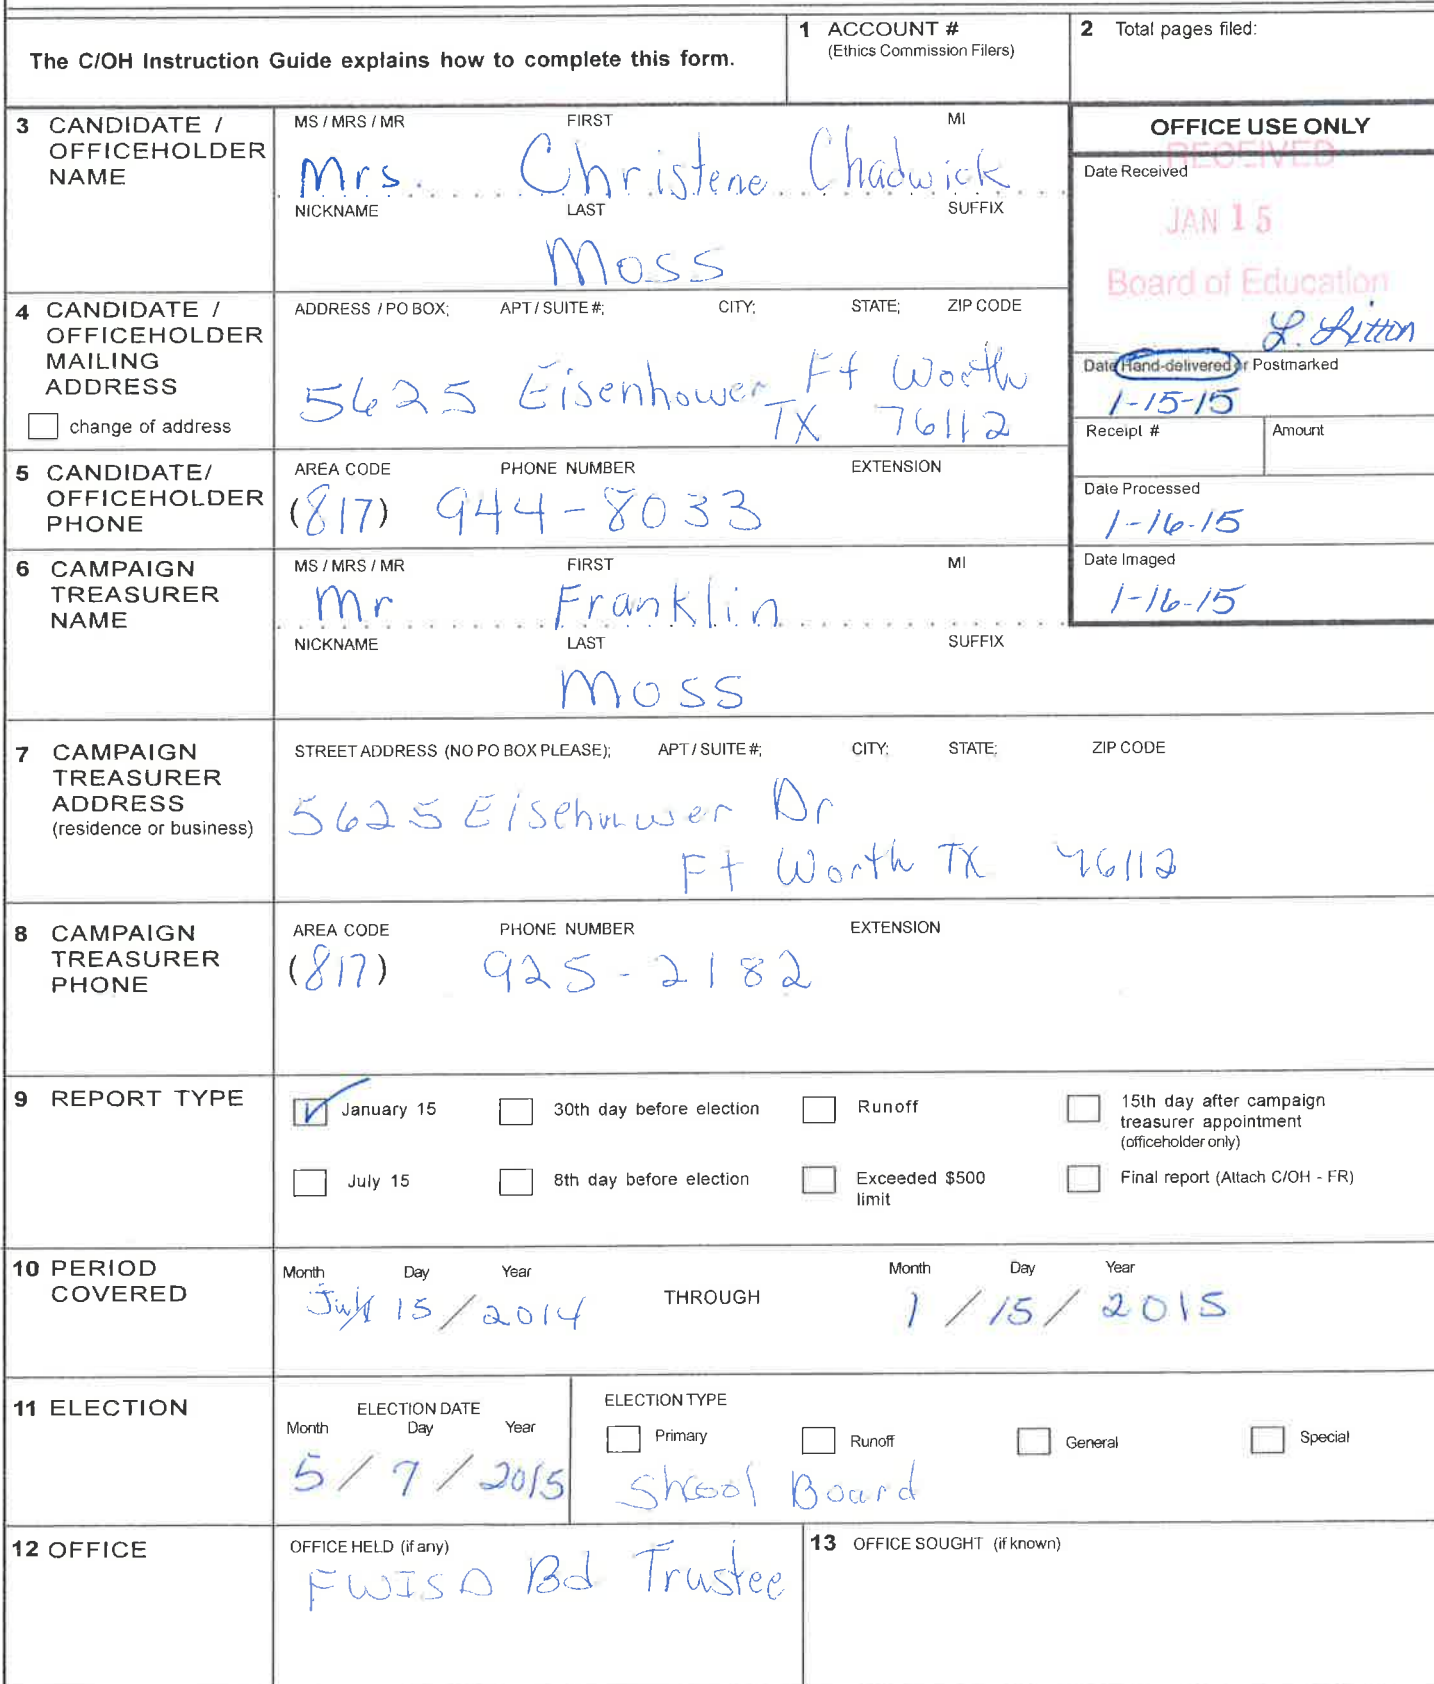 The C/OH Instruction Guide explains how to complete this form.
1 ACCOUNT #
(Ethics Commission Filers)
2 Total pages filed:
3 CANDIDATE /
OFFICEHOLDER
NAME
MS / MRS / MR FIRST MI
Mrs. Christene Chadwick
NICKNAME LAST SUFFIX
Moss
OFFICE USE ONLY
RECEIVED
Date Received
JAN 15
Board of Education
L. Litton
Date Hand-delivered or Postmarked
1-15-15
Receipt # Amount
Date Processed
1-16-15
Date Imaged
1-16-15
4 CANDIDATE /
OFFICEHOLDER
MAILING
ADDRESS
change of address
ADDRESS / PO BOX; APT / SUITE #; CITY; STATE; ZIP CODE
5625 Eisenhower Ft Worth
TX 76112
5 CANDIDATE/
OFFICEHOLDER
PHONE
AREA CODE PHONE NUMBER EXTENSION
(817) 944-8033
6 CAMPAIGN
TREASURER
NAME
MS / MRS / MR FIRST MI
Mr Franklin
NICKNAME LAST SUFFIX
Moss
7 CAMPAIGN
TREASURER
ADDRESS
(residence or business)
STREET ADDRESS (NO PO BOX PLEASE); APT / SUITE #; CITY; STATE; ZIP CODE
5625 Eisenhower Dr
Ft Worth TX 76112
8 CAMPAIGN
TREASURER
PHONE
AREA CODE PHONE NUMBER EXTENSION
(817) 925-2182
9 REPORT TYPE
January 15 30th day before election Runoff 15th day after campaign
treasurer appointment
(officeholder only)
July 15 8th day before election Exceeded $500
limit
Final report (Attach C/OH - FR)
10 PERIOD
COVERED
Month Day Year
July 15 / 2014
THROUGH
Month Day Year
1 / 15 / 2015
11 ELECTION
ELECTION DATE
Month Day Year
5 / 7 / 2015
ELECTION TYPE
Primary Runoff General Special
Board
12 OFFICE
OFFICE HELD (if any)
FWISD Bd Trustee
13 OFFICE SOUGHT (if known)